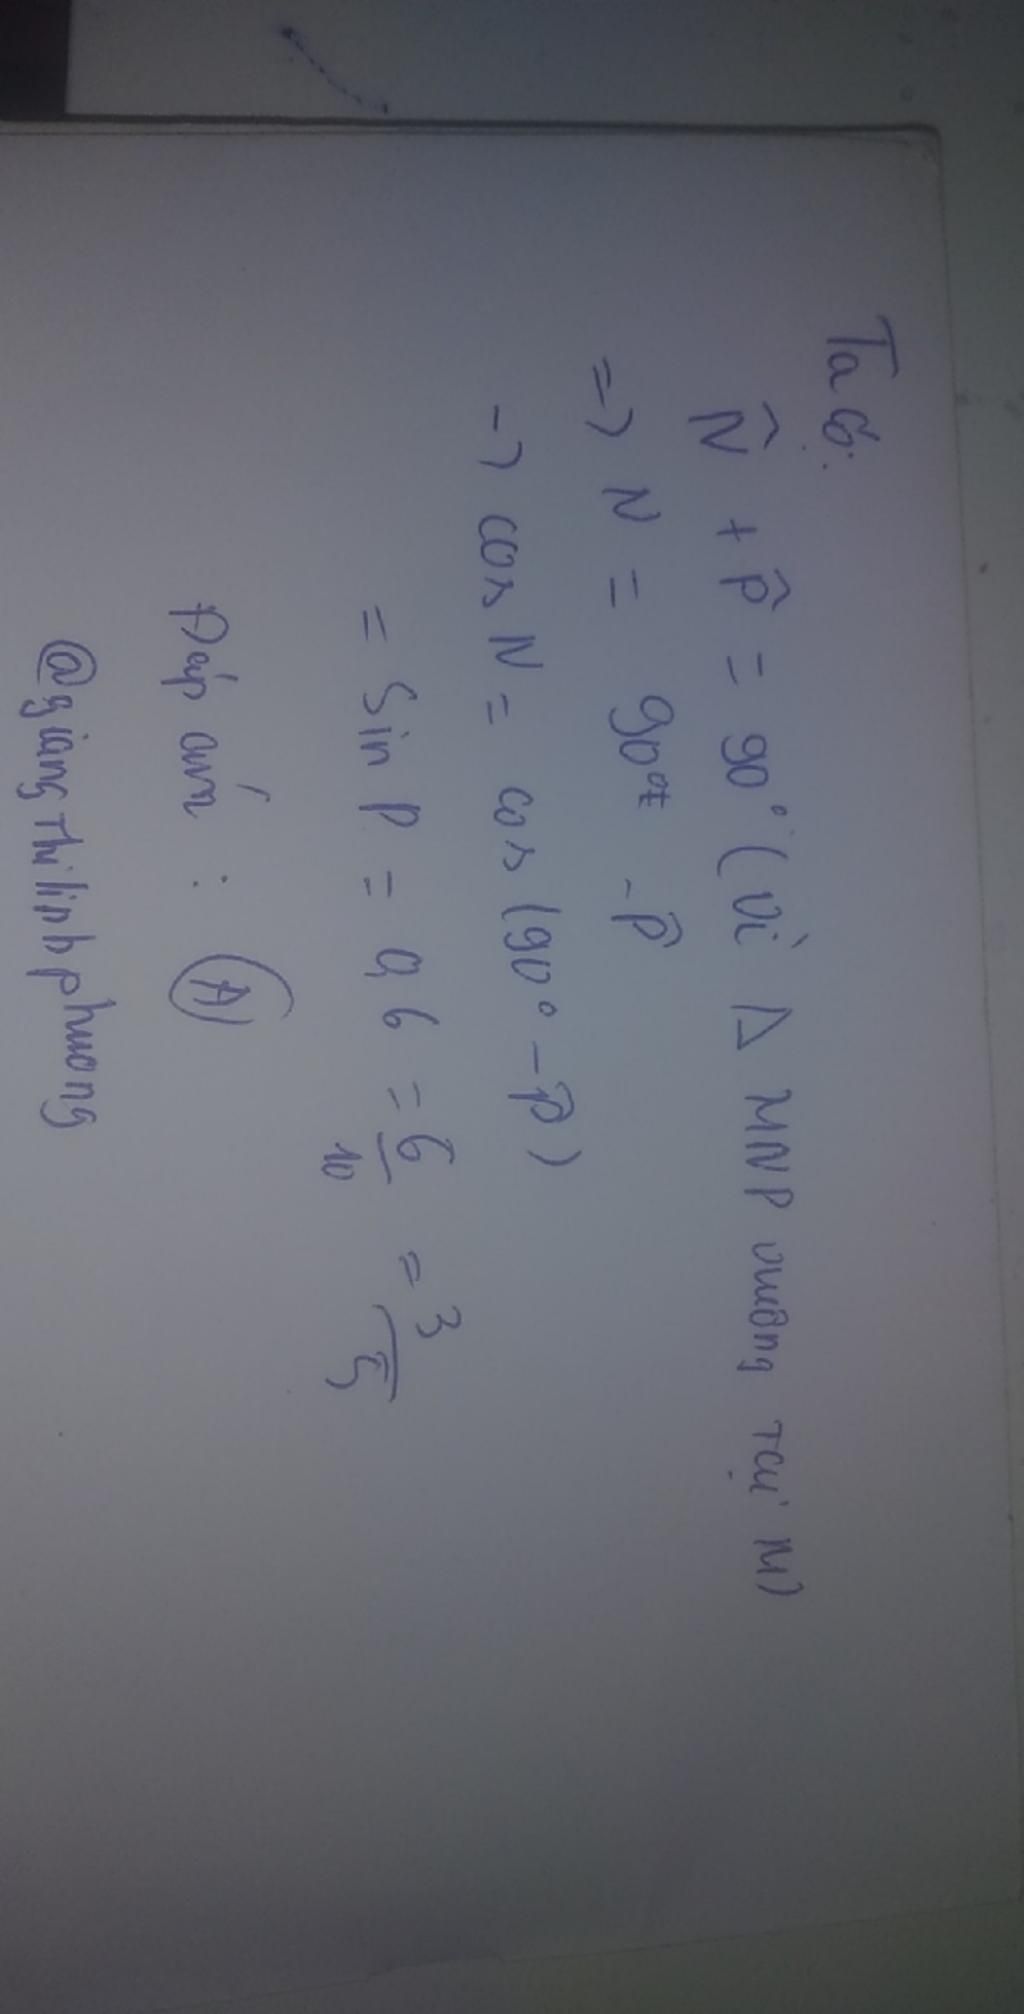 Ta có:
N̂ + P̂ = 90° (vì Δ MNP vuông tại M)
=> N = 90° - P̂
-> cos N = cos (90° - P̂)
= sin P = 0,6 = 6/10 = 3/5
Đáp án : A
@giangthilinhphuong